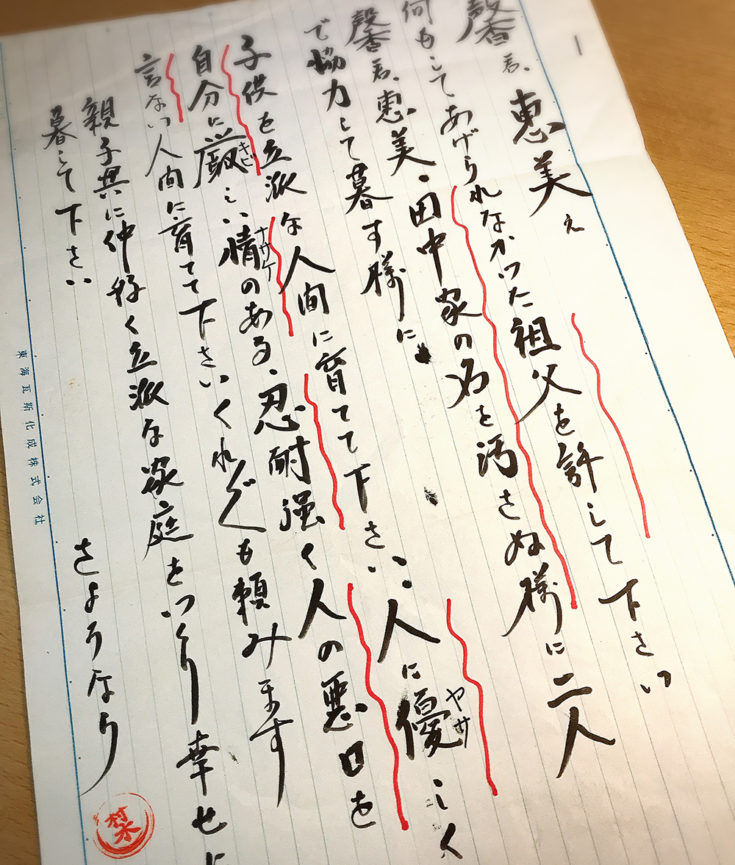 馨君、恵美え
何もしてあげられなかった祖父を許して下さい
馨君、恵美、田中家の名を汚さぬ様に二人
で協力して暮す様に
子供を立派な人間に育てて下さい、人に優しく
ヤサ
自分に厳しい情のある、忍耐強く人の悪口を
キビ
ナサケ
言ない人間に育てて下さいくれ〲も頼みます
親子共に仲好く立派な家庭をつくり幸せに
暮して下さい
さようなら
東海瓦斯化成株式会社